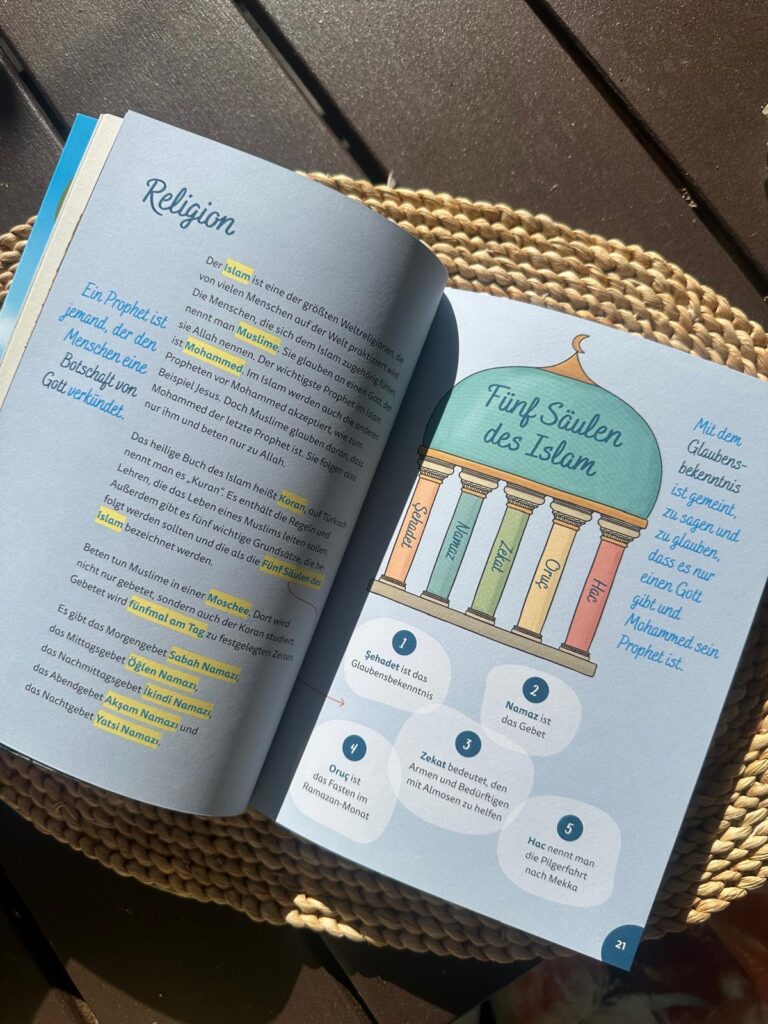 Religion
Ein Prophet ist
jemand, der den
Menschen eine
Botschaft von
Gott verkündet.
Der Islam ist eine der größten Weltreligionen, die
von vielen Menschen auf der Welt praktiziert wird.
Die Menschen, die sich dem Islam zugehörig fühlen,
nennt man Muslime. Sie glauben an einen Gott, den
sie Allah nennen. Der wichtigste Prophet im Islam
ist Mohammed. Im Islam werden auch die anderen
Propheten vor Mohammed akzeptiert, wie zum
Beispiel Jesus. Doch Muslime glauben daran, dass
Mohammed der letzte Prophet ist. Sie folgen also
nur ihm und beten nur zu Allah.
Das heilige Buch des Islam heißt Koran, auf Türkisch
nennt man es „Kuran“. Es enthält die Regeln und
Lehren, die das Leben eines Muslims leiten sollen.
Außerdem gibt es fünf wichtige Grundsätze, die be-
folgt werden sollten und die als die Fünf Säulen des
Islam bezeichnet werden.
Beten tun Muslime in einer Moschee. Dort wird
nicht nur gebetet, sondern auch der Koran studiert.
Gebetet wird fünfmal am Tag zu festgelegten Zeiten.
Es gibt das Morgengebet Sabah Namazı,
das Mittagsgebet Öğlen Namazı,
das Nachmittagsgebet İkindi Namazı,
das Abendgebet Akşam Namazı und
das Nachtgebet Yatsi Namazı.
Fünf Säulen
des Islam
Şehadet
Namaz
Zekat
Oruç
Hac
Mit dem
Glaubens-
bekenntnis
ist gemeint,
zu sagen und
zu glauben,
dass es nur
einen Gott
gibt und
Mohammed sein
Prophet ist.
1
Şehadet ist das
Glaubensbekenntnis
2
Namaz ist
das Gebet
3
Zekat bedeutet, den
Armen und Bedürftigen
mit Almosen zu helfen
4
Oruç ist
das Fasten im
Ramazan-Monat
5
Hac nennt man
die Pilgerfahrt
nach Mekka
21